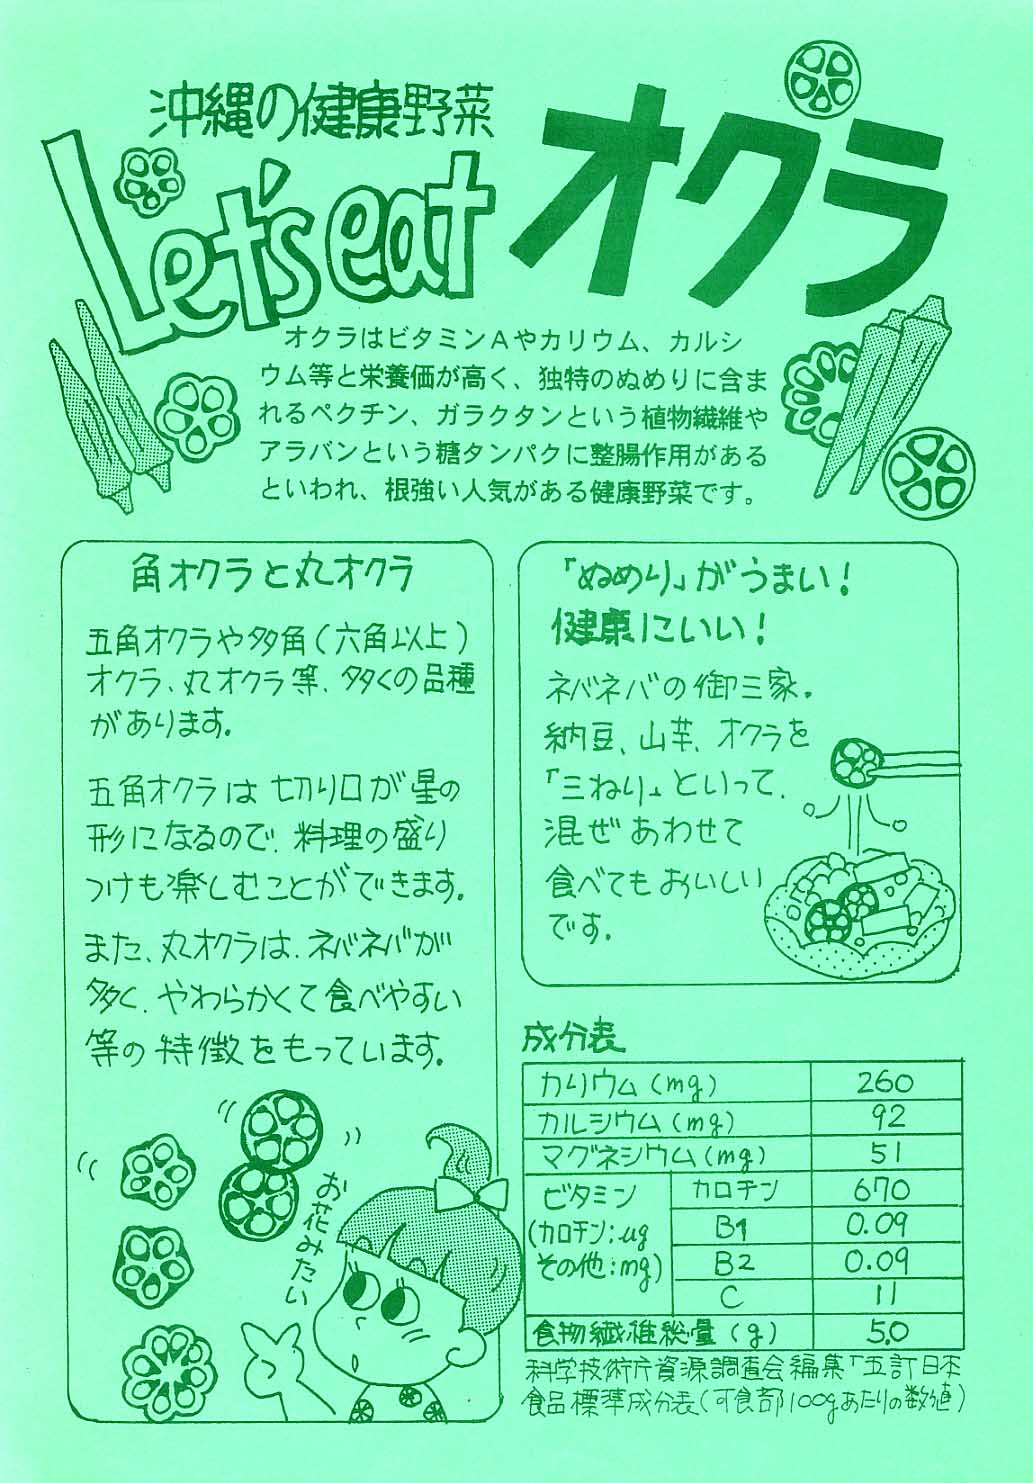 沖縄の健康野菜
Let's eat オクラ
オクラはビタミンAやカリウム、カルシ
ウム等と栄養価が高く、独特のぬめりに含ま
れるペクチン、ガラクタンという植物繊維や
アラバンという糖タンパクに整腸作用がある
といわれ、根強い人気がある健康野菜です。
角オクラと丸オクラ
五角オクラや多角(六角以上)
オクラ、丸オクラ等、多くの品種
があります。
五角オクラは切り口が星の
形になるので、料理の盛り
つけも楽しむことができます。
また、丸オクラは、ネバネバが
多く、やわらかくて食べやすい
等の特徴をもっています。
お花みたい
「ぬめり」がうまい!
健康にいい!
ネバネバの御三家。
納豆、山芋、オクラを
「三ねり」といって、
混ぜあわせて
食べてもおいしい
です。
成分表
カリウム(mg) 260
カルシウム(mg) 92
マグネシウム(mg) 51
ビタミン カロチン 670
(カロチン:μg B1 0.09
その他:mg) B2 0.09
C 11
食物繊維総量(g) 5.0
科学技術庁資源調査会編集「五訂日本
食品標準成分表(可食部100gあたりの数値)